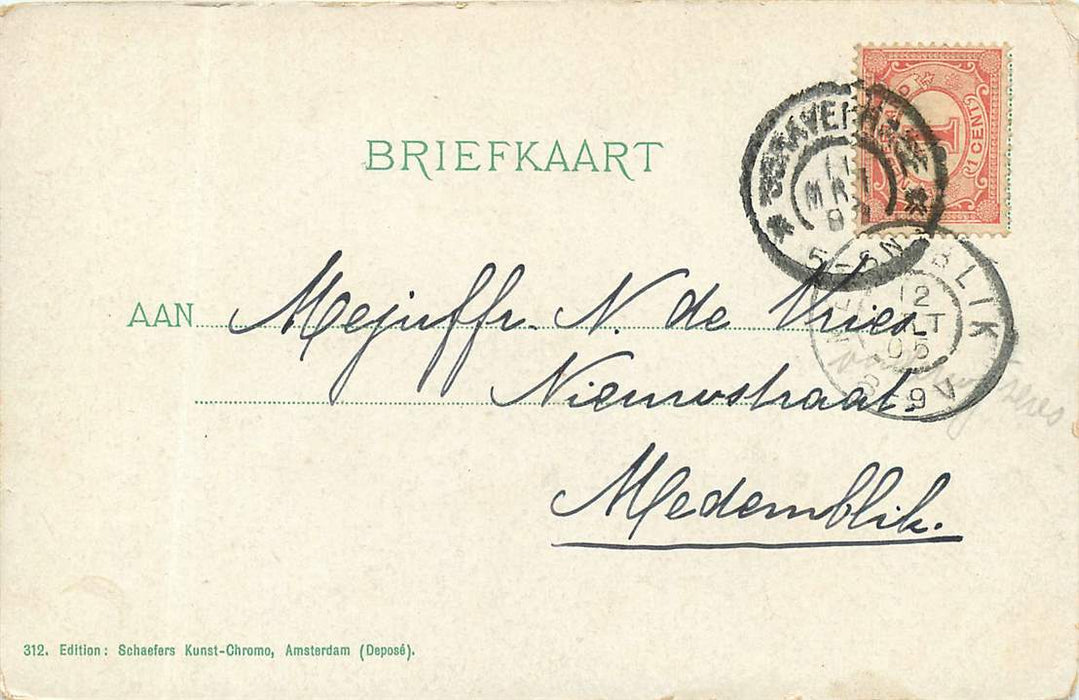 BRIEFKAART
1 CENT
AAN Mejuffr. N. de Vries
Nieuwstraat.
Medemblik.
12
05
312. Edition: Schaefers Kunst-Chromo, Amsterdam (Deposé).